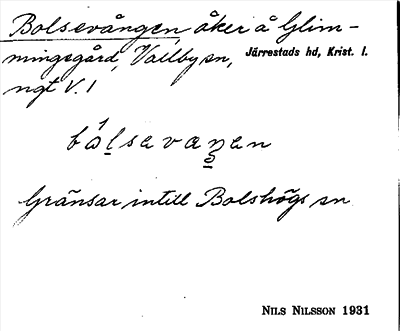 Bolsevången, åker å Glim-
mingegård, Vallby sn, Järrestads hd, Krist. l.
ngt V. 1
bo̱lsevaŋen
Gränsar intill Bolshögs sn
NILS NILSSON 1931